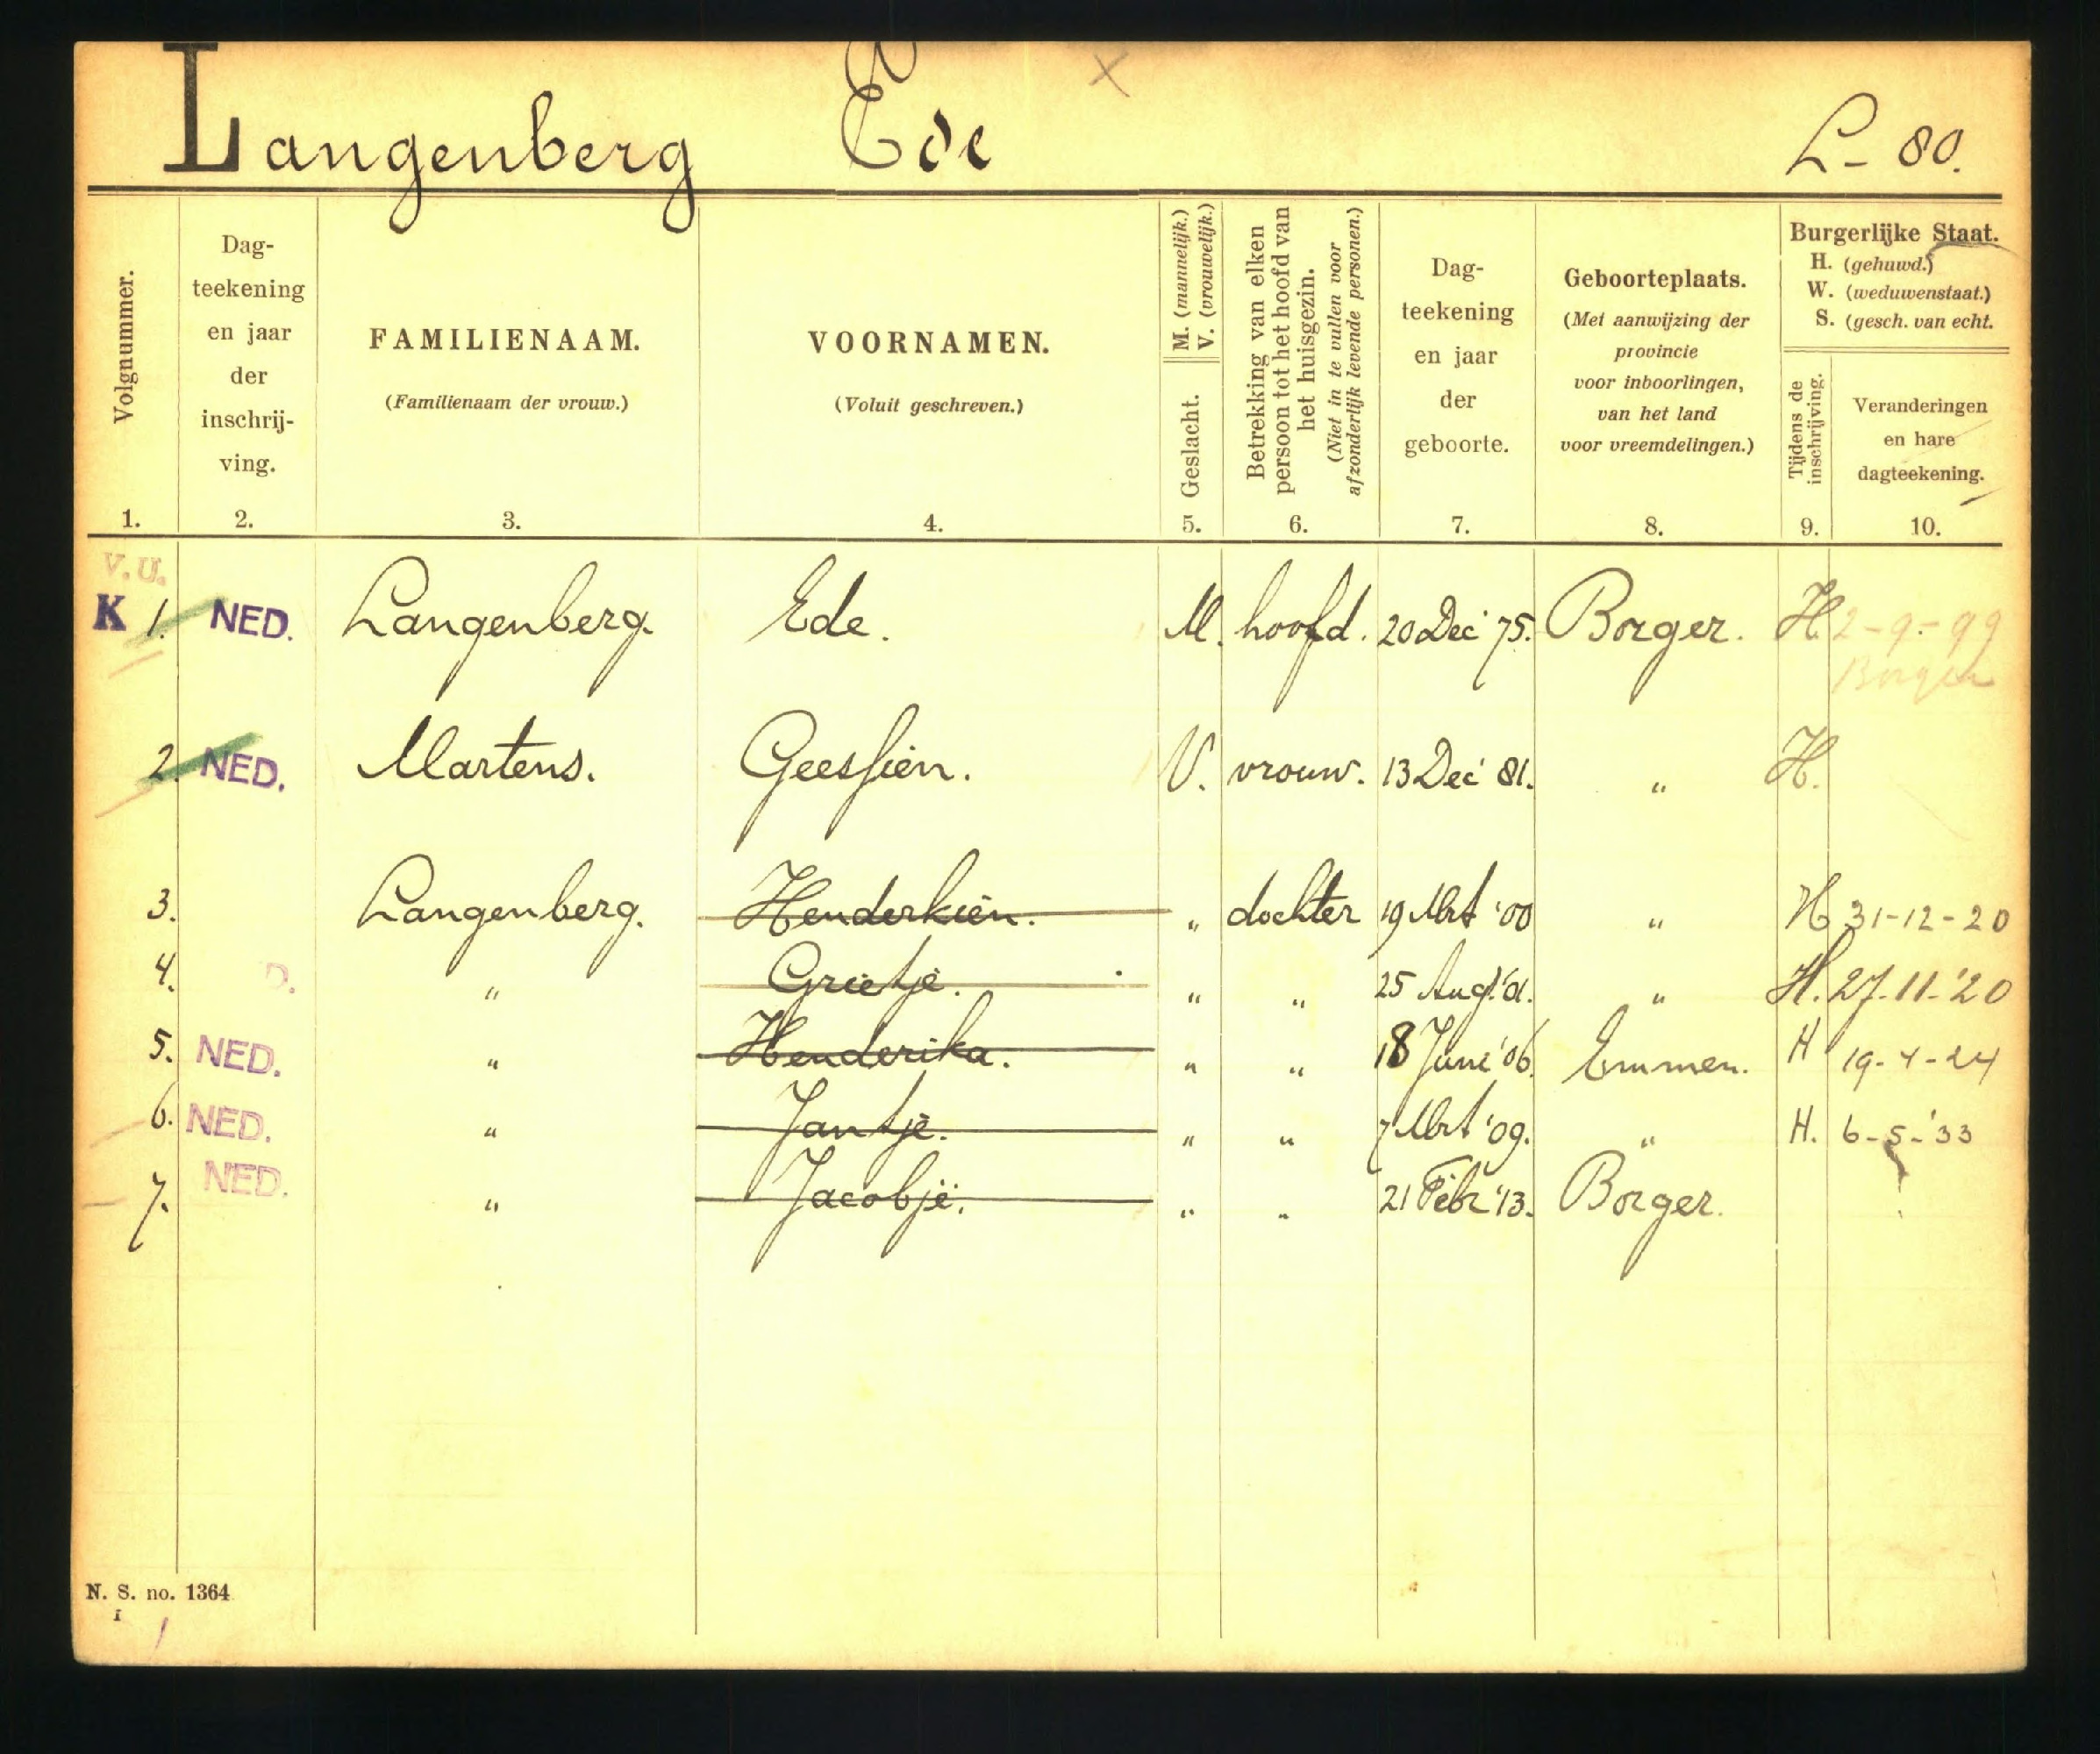 Langenberg Ede L- 80.
Volgnummer.
1.
Dag-
teekening
en jaar
der
inschrij-
ving.
2.
FAMILIENAAM.
(Familienaam der vrouw.)
3.
VOORNAMEN.
(Voluit geschreven.)
4.
Geslacht.
M. (mannelijk.)
V. (vrouwelijk.)
5.
Betrekking van elken
persoon tot het hoofd van
het huisgezin.
(Niet in te vullen voor
afzonderlijk levende personen.)
6.
Dag-
teekening
en jaar
der
geboorte.
7.
Geboorteplaats.
(Met aanwijzing der
provincie
voor inboorlingen,
van het land
voor vreemdelingen.)
8.
Burgerlijke Staat.
H. (gehuwd.)
W. (weduwenstaat.)
S. (gesch. van echt.
Tijdens de
inschrijving.
9.
Veranderingen
en hare
dagteekening.
10.
V.U.
K 1. NED. Langenberg. Ede. M. hoofd. 20 Dec '75. Borger. H. 2-9-99
Borger
2. NED. Martens. Geessien. V. vrouw. 13 Dec '81. " H.
3. Langenberg. Henderkien. " dochter 19 Mrt '00 " H 31-12-20
4. D. " Grietje. " " 25 Aug. '01. " H. 27-11-'20
5. NED. " Henderika. " " 18 Juni '06. Emmen. H 19-4-24
6. NED. " Jantje. " " 7 Mrt '09. " H. 6-5-'33
7. NED. " Jacobje. " " 21 Febr '13. Borger.
N. S. no. 1364
I